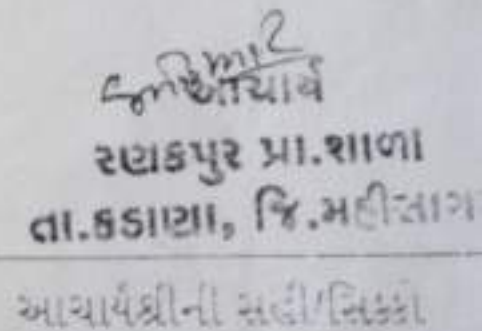 આચાર્ય
રણકપુર પ્રા.શાળા
તા.કડાણા, જિ.મહીસાગ
આચાર્યશ્રીની સહી/સિક્કો